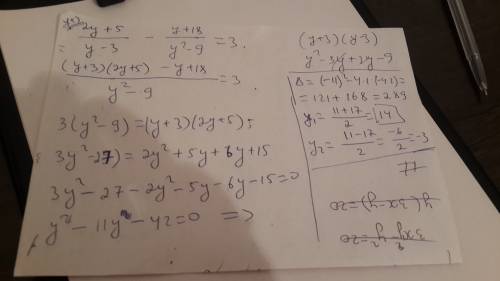 2y+5/y-3 - y+18/y²-9 = 3.
(y+3)(2y+5) - y+18/y²-9 = 3
3(y²-9)=(y+3)(2y+5);
3y²-27) = 2y²+5y+6y+15
3y²-27-2y²-5y-6y-15=0
y²-11y-42=0 =>
(y+3)(y-3)
y²-3y+3y-9
Δ=(-11)²-4·1·(-42)=
=121+168=289
y₁=11+17/2=14
y₂=11-17/2=-6/2=-3
77
y(3x-y)=20
3xy-y²=20